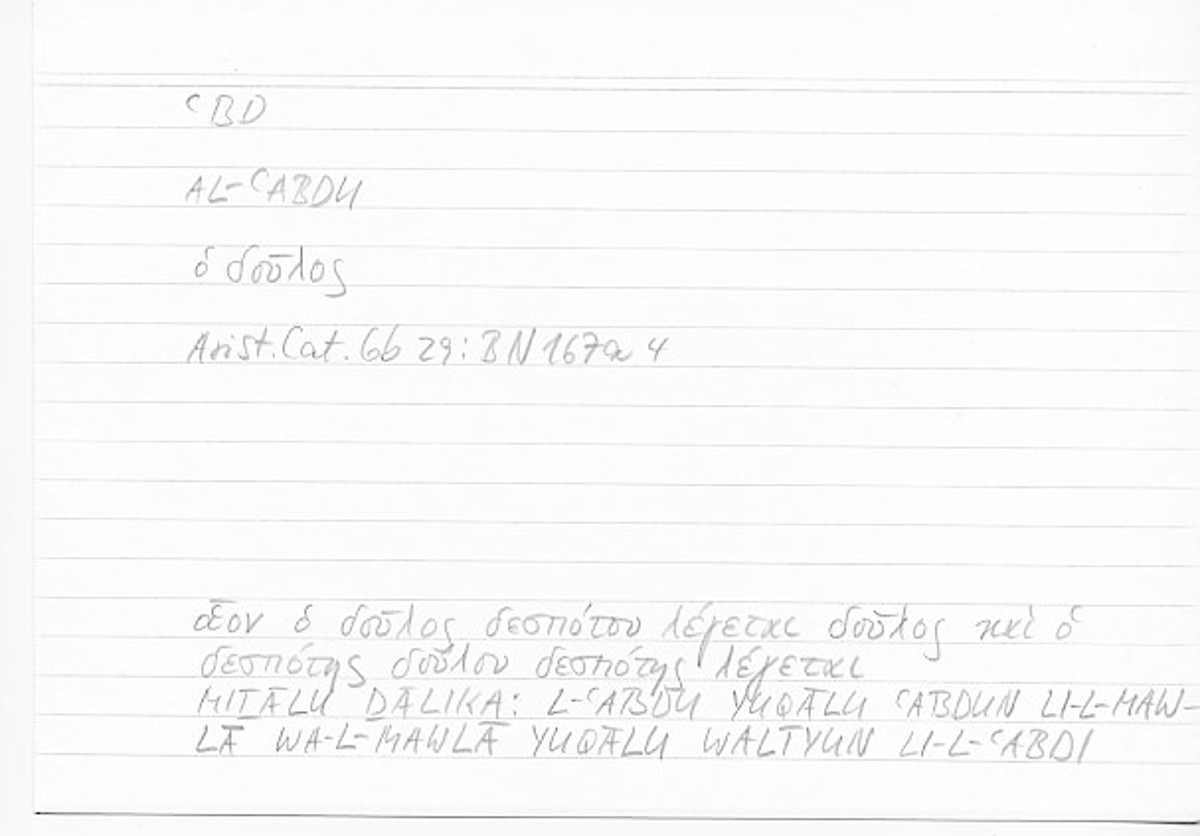 ʿBD
AL-ʿABDU
ὁ δοῦλος
Arist. Cat. 6b 29: BN 167a 4
οἷον ὁ δοῦλος δεσπότου λέγεται δοῦλος καὶ ὁ
δεσπότης δούλου δεσπότης λέγεται
MIṮĀLU ḎĀLIKA: L-ʿABDU YUQĀLU ʿABDUN LI-L-MAW-
LĀ WA-L-MAWLĀ YUQĀLU WALĪYUN LI-L-ʿABDI